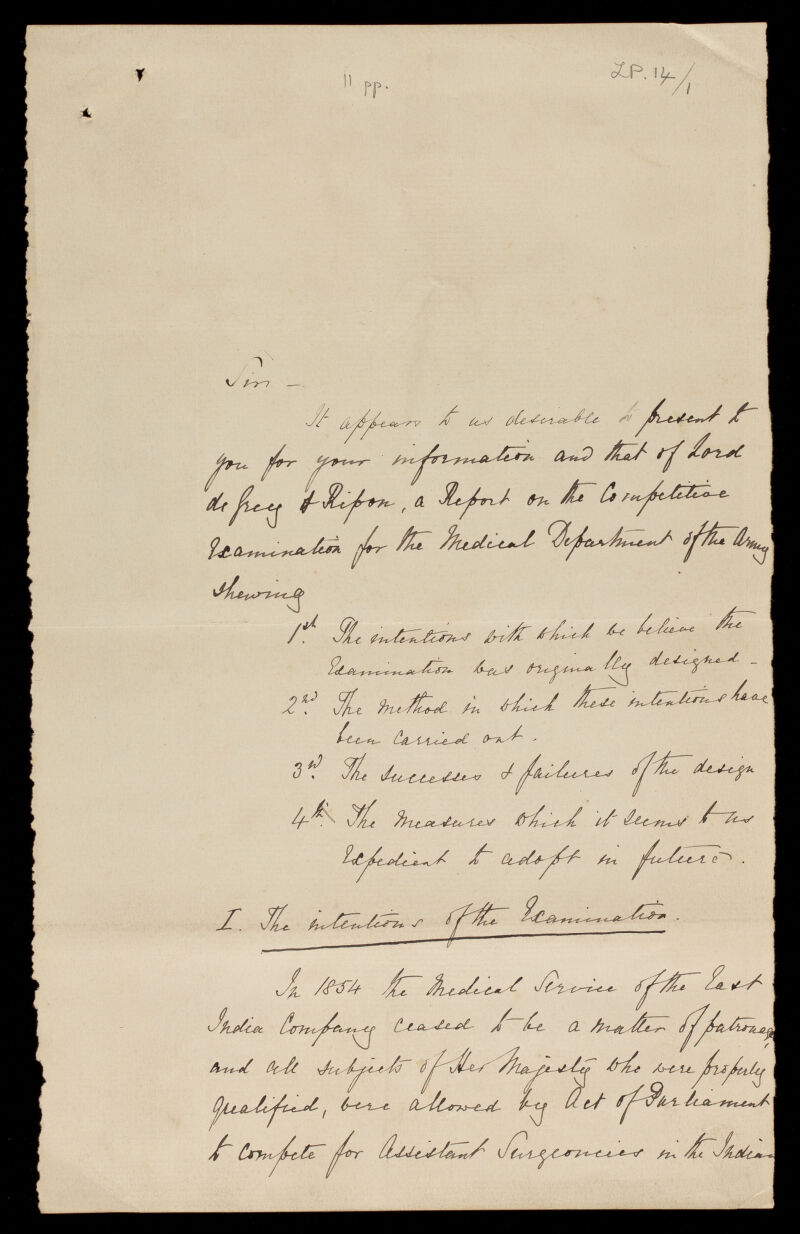 11 pp.
LP. 14/1
Sir —
It appears to us desirable to present to
you for your information and that of Lord
de Grey & Ripon, a Report on the Competitive
Examination for the Medical Department of the Army
shewing
1st. The intentions with which we believe the
Examination was originally designed –
2nd. The method in which these intentions have
been carried out.
3rd. The successes & failures of the design
4th. The measures which it seems to us
Expedient to adopt in future.
I. The intentions of the Examination.
In 1854 the Medical Service of the East
India Company ceased to be a matter of patronage,
and all subjects of Her Majesty who were properly
qualified, were allowed by Act of Parliament
to compete for Assistant Surgeoncies in the Indian